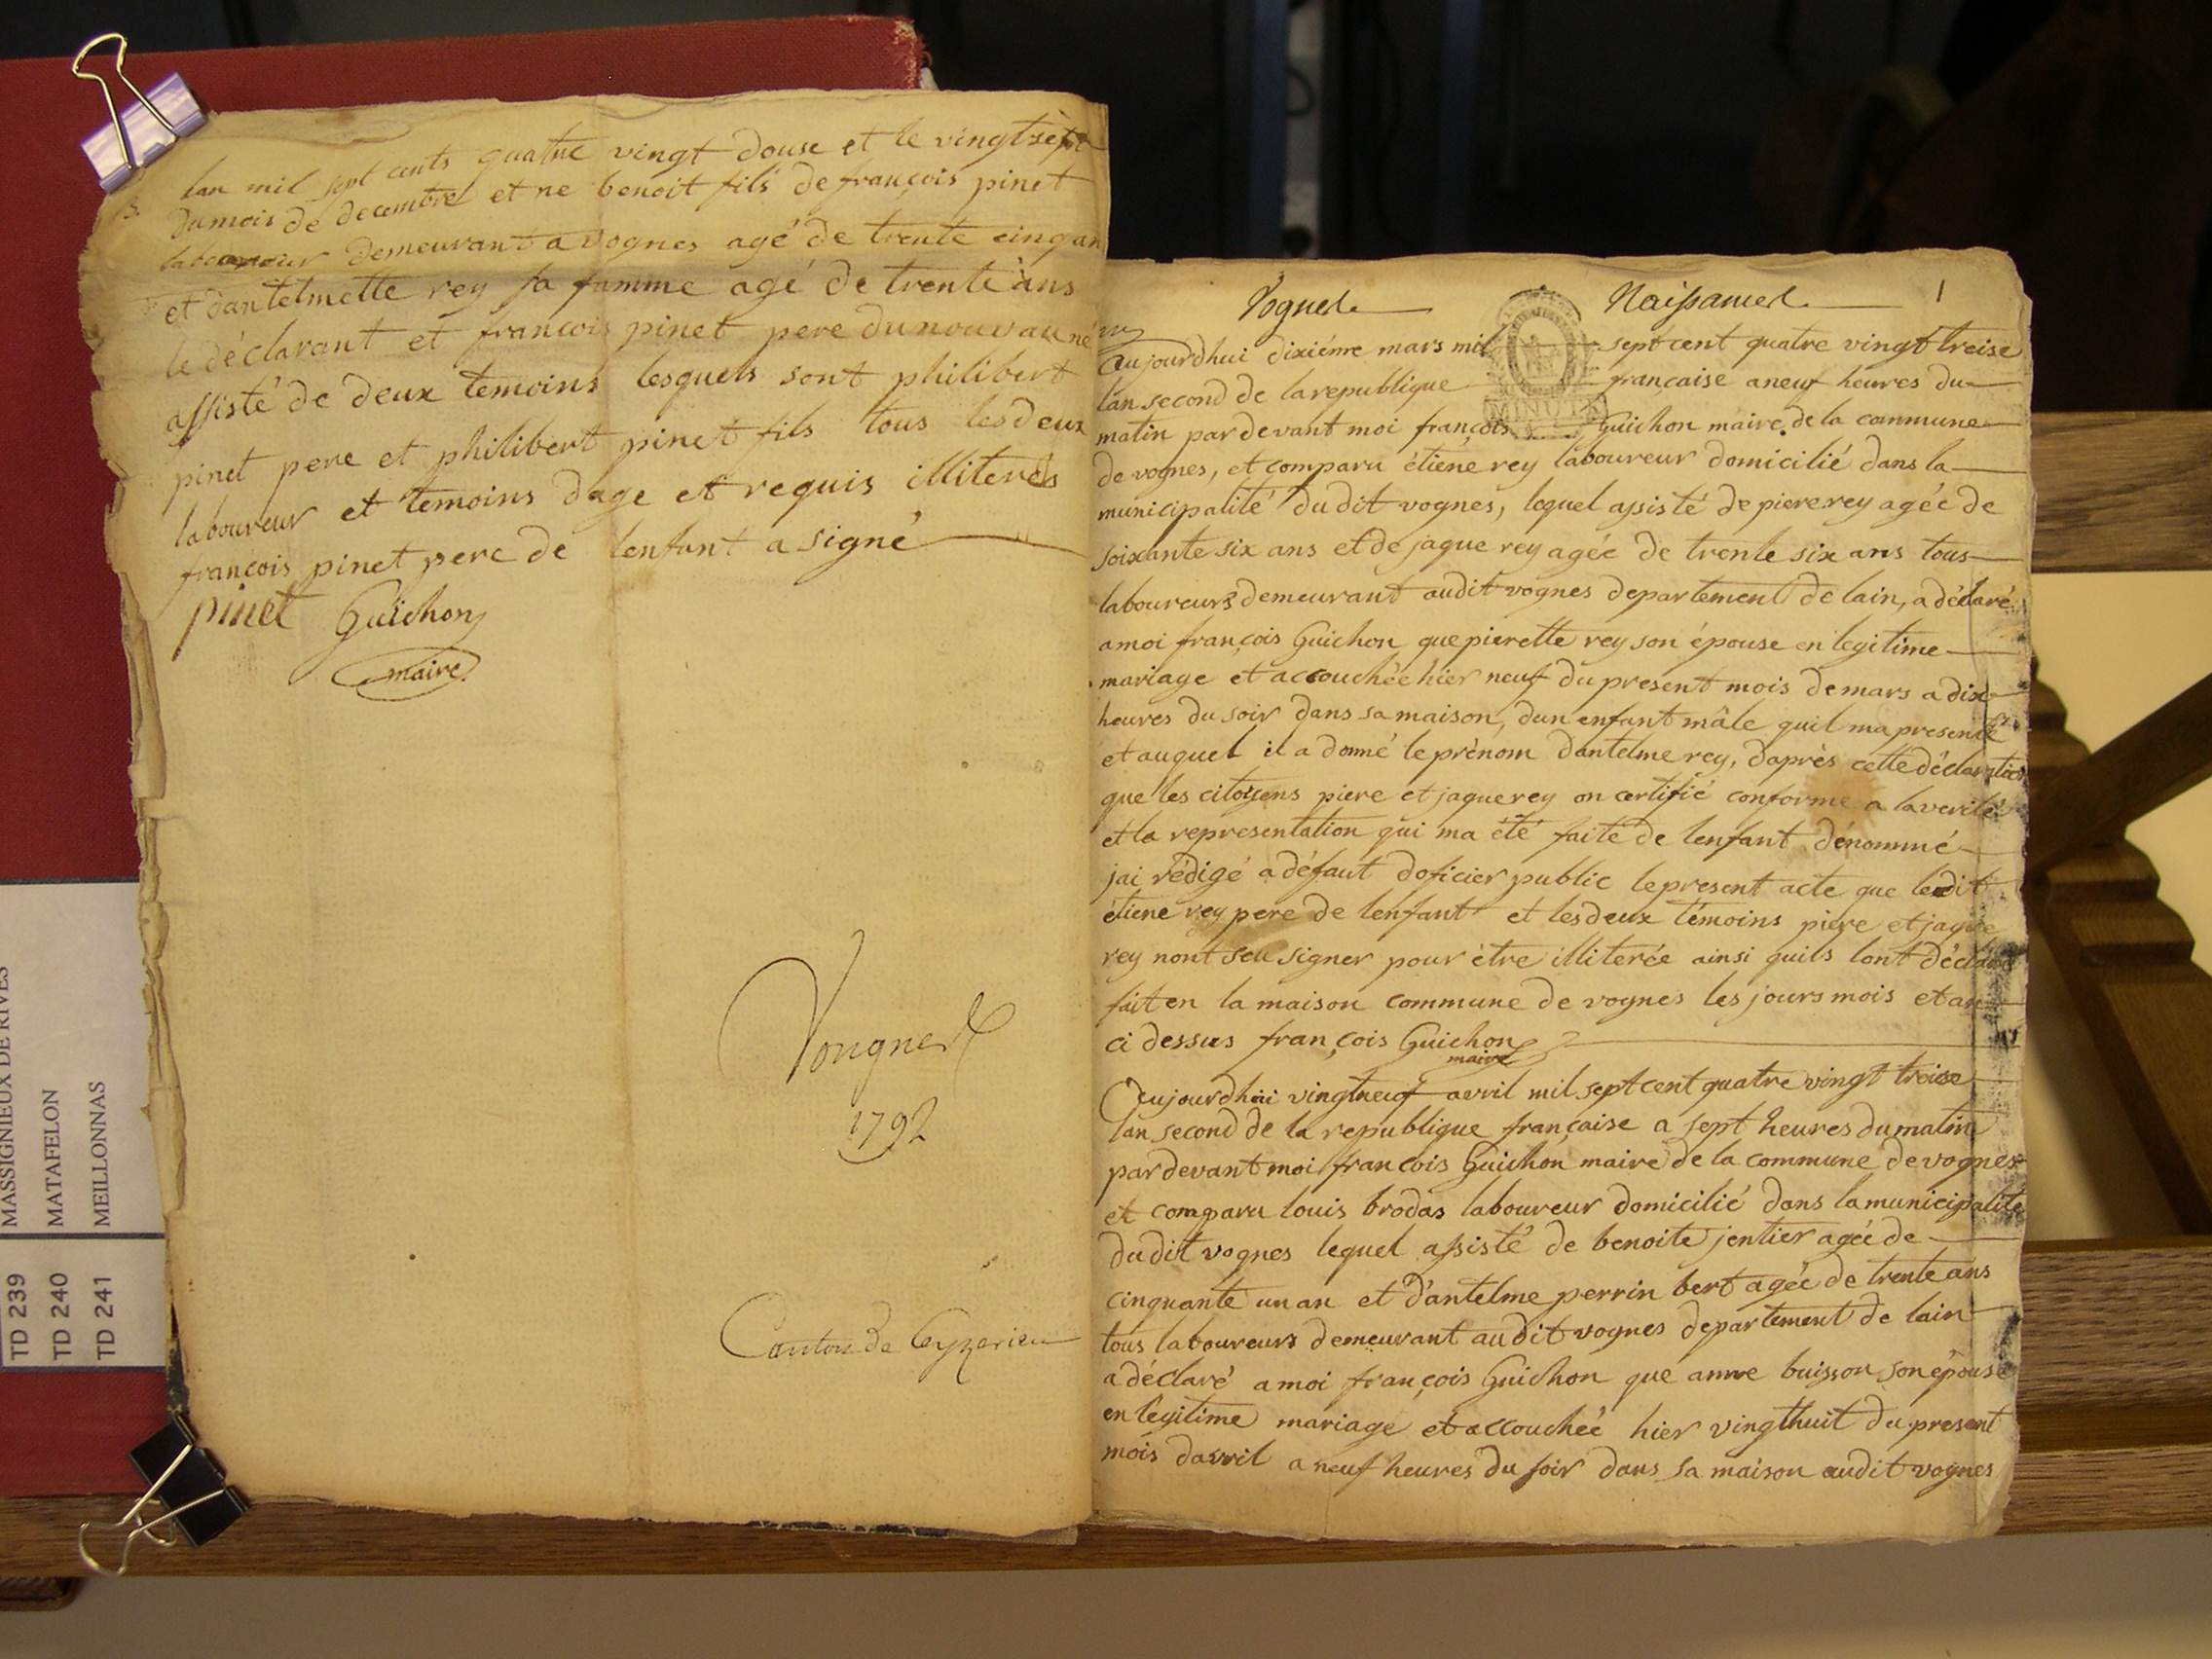 lan mil sept cents quatre vingt douse et le vingtsept
du mois de decembre et ne benoit fils de françois pinet
laboureur demeurant a vognes agé de trente cinq an
et dantelmette rey sa famme agé de trente ans
le déclarant et francois pinet pere du nouvau né
assisté de deux temoins lesquels sont philibert
pinet pere et philibert pinet fils tous les deux
laboureur et temoins dage et requis illiterés
françois pinet pere de lenfant a signé
pinet Guichon
maire
Vongnes
1792
Canton de Ceyzerieu
Vognes Naissances 1
MINUTE
aujourdhui dixiéme mars mil sept cent quatre vingt treise
lan second de la republique française a neuf heures du
matin par devant moi françois Guichon maire de la commune
de vognes, et comparu étiene rey laboureur domicilié dans la
municipalité du dit vognes, lequel assisté de piere rey agée de
soixante six ans et de jaque rey agée de trente six ans tous
laboureurs demeurant audit vognes departement de lain, a déclaré
a moi françois Guichon que pierette rey son épouse en legitime
mariage et accouchée hier neuf du present mois de mars a dix
heures du soir dans sa maison, dun enfant mâle quil ma presenté
et auquel il a donné le prènom dantelme rey, daprès cette déclaration
que les citoyens piere et jaque rey on certifié conforme a la verité
et la representation qui ma été faite de lenfant dénommé
jai rédigé a défaut doficier public le present acte que ledit
étiene rey pere de lenfant et les deux témoins piere et jaque
rey nont seu signer pour étre illiterée ainsi quils lont déclaré
fait en la maison commune de vognes les jours mois et an
ci dessus françois Guichon
maire
Aujourdhui vingtneuf avril mil sept cent quatre vingt treise
lan second de la republique française a sept heures du matin
par devant moi francois Guichon maire de la commune de vognes
et comparu louis brodas laboureur domicilié dans la municipalité
du dit vognes lequel assisté de benoite jentier agée de
cinquante un an et d'antelme perrin bert agée de trente ans
tous laboureurs demeurant audit vognes departement de lain
a déclaré a moi françois Guichon que anne buisson son épouse
en legitime mariage et accouchée hier vingthuit du present
mois davril a neuf heures du soir dans sa maison audit vognes
TD 239 MASSIGNIEUX DE RIVES
TD 240 MATAFELON
TD 241 MEILLONNAS